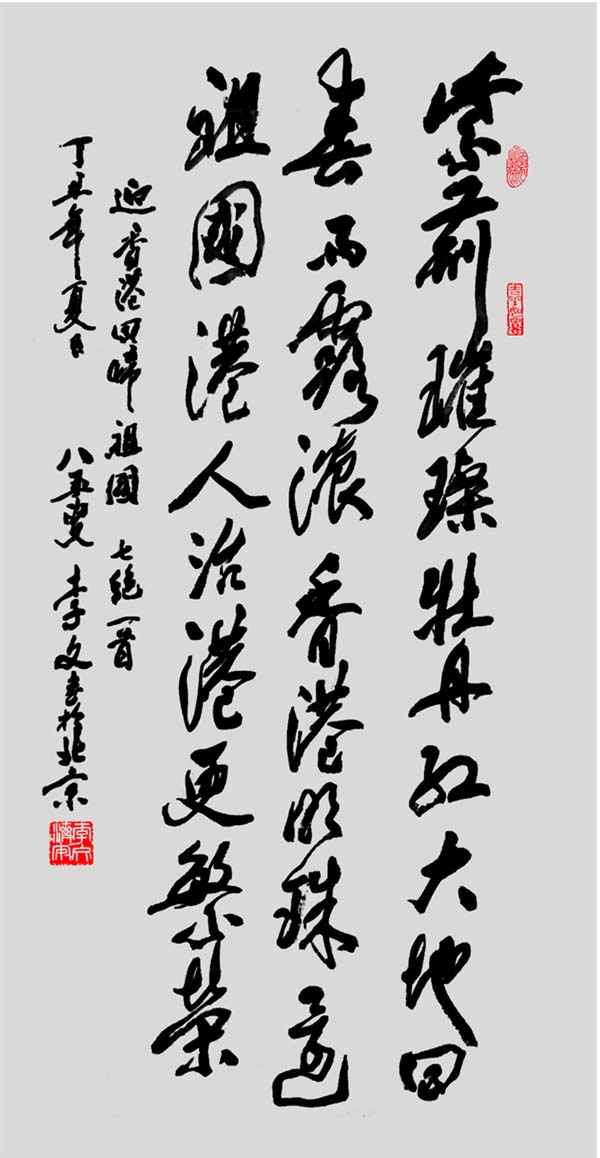 紫荊璀璨牡丹红大地回
春雨露濃香港明珠還
祖國港人治港更繁荣
迎香港回歸祖國 七绝一首
丁丑年夏日 八五叟 李文书於北京